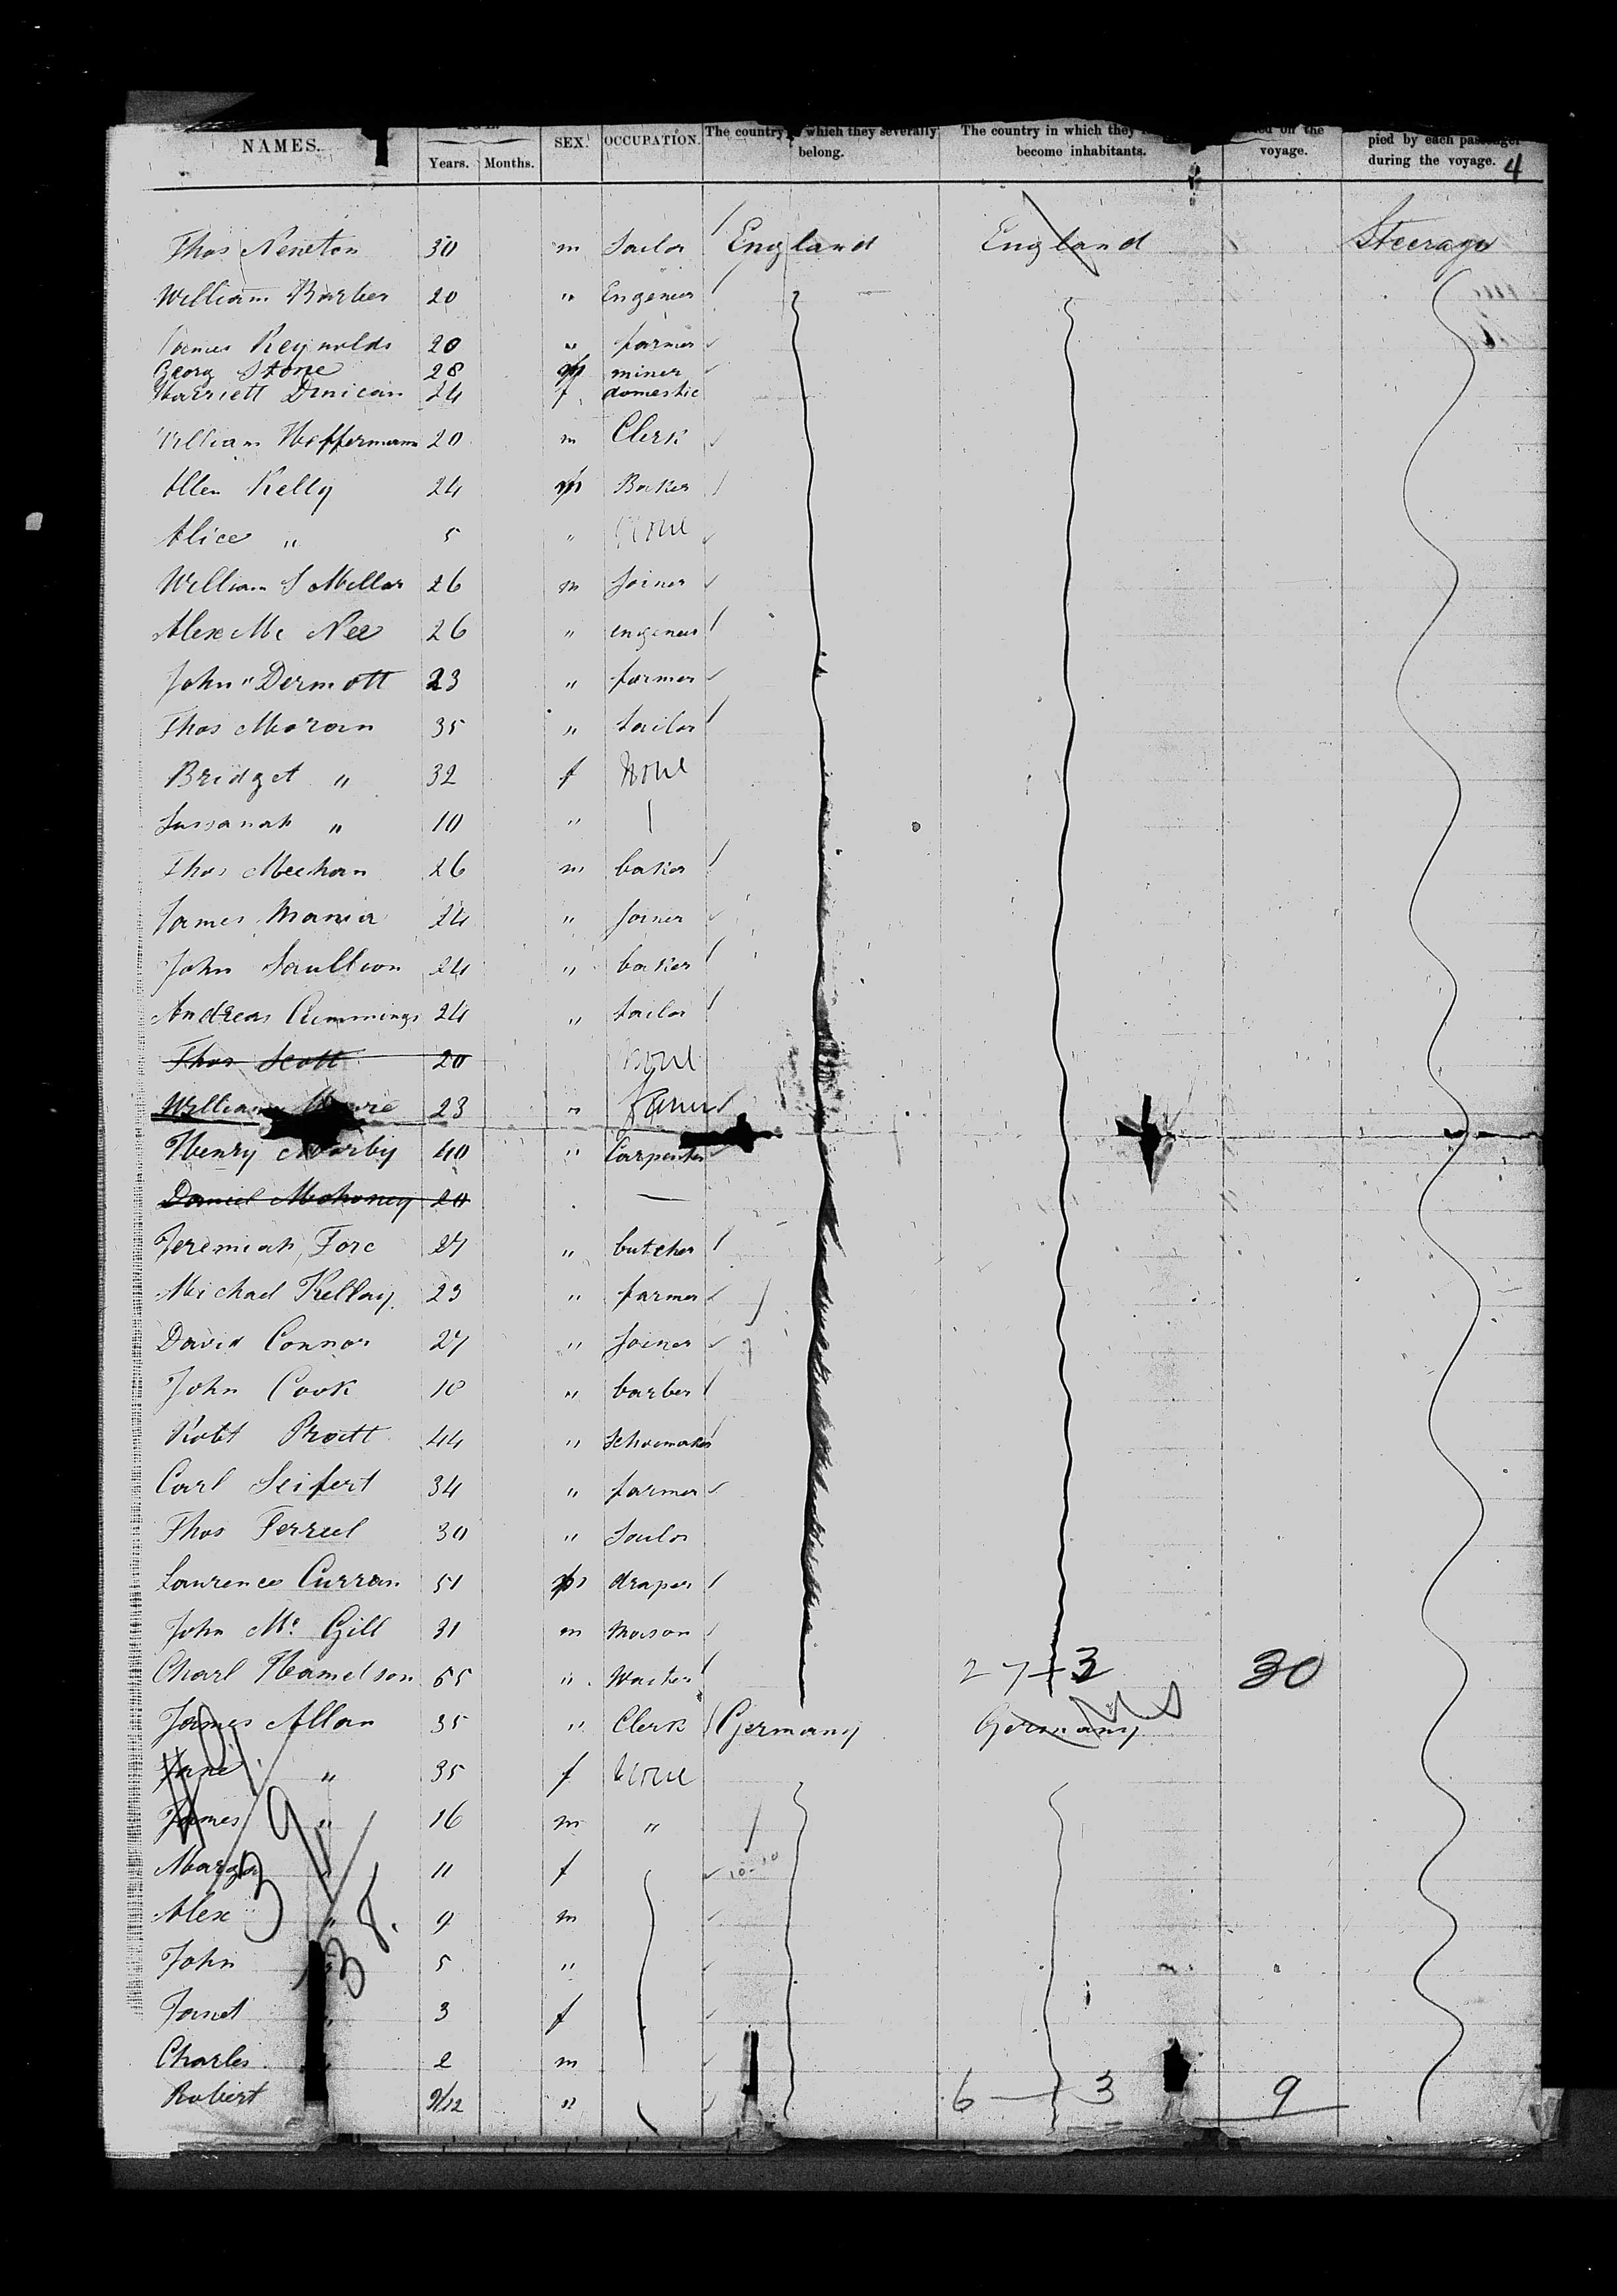 NAMES. Years. Months. SEX. OCCUPATION. The country which they severally belong. The country in which they become inhabitants. on the voyage. pied by each passenger during the voyage. 4
Thos Newton 30 m Sailor England England Steerage
William Barber 20 " Engeneer
James Reynolds 20 " farmer
Georg Stone 28 m miner
Harriett Dunican 24 f domestic
William Heffermann 20 m Clerk
Allen Kelly 24 m Baker
Alice " 5 " None
William S Millar 26 m Joiner
Alex Mc Nee 26 " engeneer
John " Dermott 23 " farmer
Thos Moran 35 " tailor
Bridget " 32 f None
Sussanah " 10 "
Thos Meehan 26 m baker
James Mania 24 " Joiner
John Saullion 24 " baker
Andreas Cummings 24 " tailor
Thos Scott 20 None
William 23 " Farmer
Henry 40 " Carpenter
Daniel Mahoney 20 —
Jeremiah Forc 27 " butcher
Michael Kellay 23 " farmer
David Connor 27 " Joiner
John Cook 18 " barber
Robt Pratt 44 " Schoemaker
Carl Seifert 34 " farmer
Thos Ferrul 30 " Sailor
Laurence Curran 51 m draper
John Mc Gill 31 m Mason
Charl Hamelson 55 " 27 + 3 30
James Allan 35 " Clerk Germany Germany U S
Jane " 35 f None
James " 16 m "
Margr " 11 f 10-10
Alex " 9 m
John " 5 "
Janet " 3 f
Charles " 2 m
Robert 9/12 " 6 — 3 9